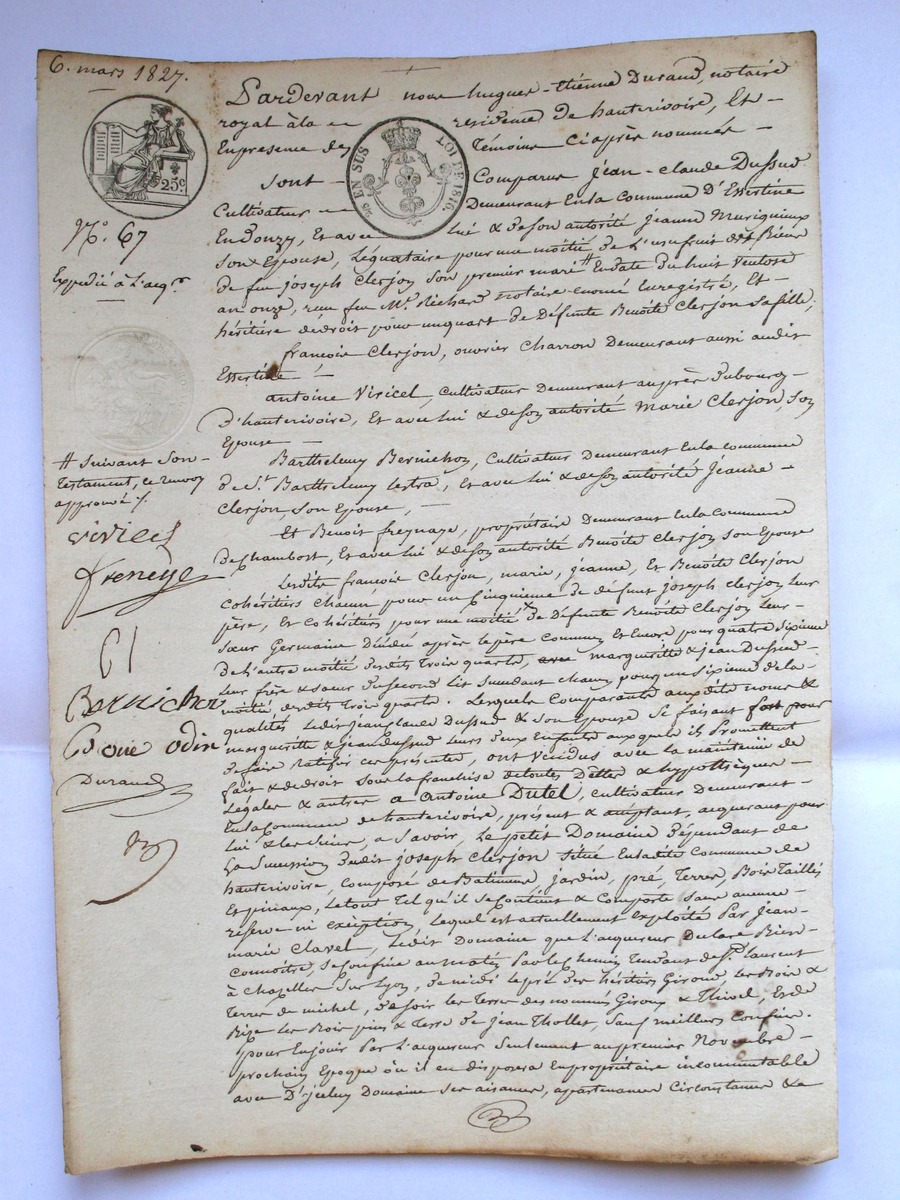 6. mars 1827.
Pardevant nous hugues-étienne Durand, notaire
royal à la residence de hauterivoire, Et
En presence des Témoins ci après nommés
25c
EN SUS
LOI DE 1816.
sont Comparus jean-claude Dussud
Cultivateur Demeurant En la Commune D'Essertine
En donzy, Et avec lui & de son autorité jeanne Muriguieux
son Epouse, Légataire pour une moitié de L'usufruit des Biens
de feu joseph Clerjon son premier mari # En date du huit Ventose
an onze, reçu feu Me. Richard notaire Enregistré, Et
héritière de droit pour un quart de Défunte Benoîte Clerjon sa fille;
No. 67
Expedié à L'acqr.
françois Clerjon, ouvrier Charron Demeurant aussi audit
Essertine
antoine Viricel, Cultivateur Demeurant auprès Du bourg
D'hauterivoire, Et avec lui & de son autorité Marie Clerjon, son
Epouse
Barthelemy Bernichon, Cultivateur Demeurant En la commune
de St. Barthelemy lestra, Et avec lui & de son autorité Jeanne
Clerjon, son Epouse,
# Suivant Son
Testament, ce renvoy
approuvé /.
viricel
freneys
Bernichon
odin
Durand
Et Benoit freynays, propriétaire Demeurant En la Commune
De Chambost, Et avec lui & de son autorité Benoîte Clerjon son Epouse
Lesdits françois Clerjon, marie, jeanne, Et Benoîte Clerjon
Cohéritiers Chacun pour un Cinquieme de défunt joseph Clerjon leur
père, Et Cohéritiers pour une moitié de Défunte Benoîte Clerjon leur
sœur Germaine Décédée après le père Commun Et Encore pour quatre sixieme
De l'autre moitié desdits Trois quarts, avec margueritte & jean Dussud
leur frère & sœur Du second Lit Succedant chacun pour un sixieme de la
moitié desdits Trois quarts. Lesquels Comparants auxdits noms &
qualités Ledit jean Claude Dussud & son Epouse se faisant fort pour
marguerite & jean dussud leurs Deux Enfants auxquels ils promettent
De faire Ratifier ces présentes, ont Vendus avec la maintenue de
fait & de droit sous la franchise de toutes Dettes & hypothèques
Légales & autres à Antoine Dutel, Cultivateur Demeurant
En la Commune de hauterivoire, présent & acceptant, acquerant pour
Lui & les siens, a Savoir, Le petit Domaine Dépendant de
La Succession dudit joseph Clerjon situé En ladite Commune de
hauterivoire, Composé de Batiments jardin, pré, Terres, Bois Taillis
Et pinaux, Le tout Tel qu'il se Contient & Comporte sans aucune
réserve ni exception, Lequel est actuellement exploité Par Jean
marie Clavel, Ledit Domaine que L'acquereur Declare Bien
Connoître, se Confine au matin Par le Chemin Tendant de St. Laurent
à Chazelles sur Lyon, De midi le pré des héritiers Giroud Les Bois &
Terres de michel, De soir les Terres des nommés Giroux & Thivel, Et de
Bize les Bois pins & Terre De Jean Thollet, Sauf meilleurs Confins.
pour En jouir Par L'acquereur Seulement au premier Novembre
prochain Epoque où il en disposera En propriétaire incommutable
avec D'icelui Domaine Ses aisances, apartenances Circonstances &a